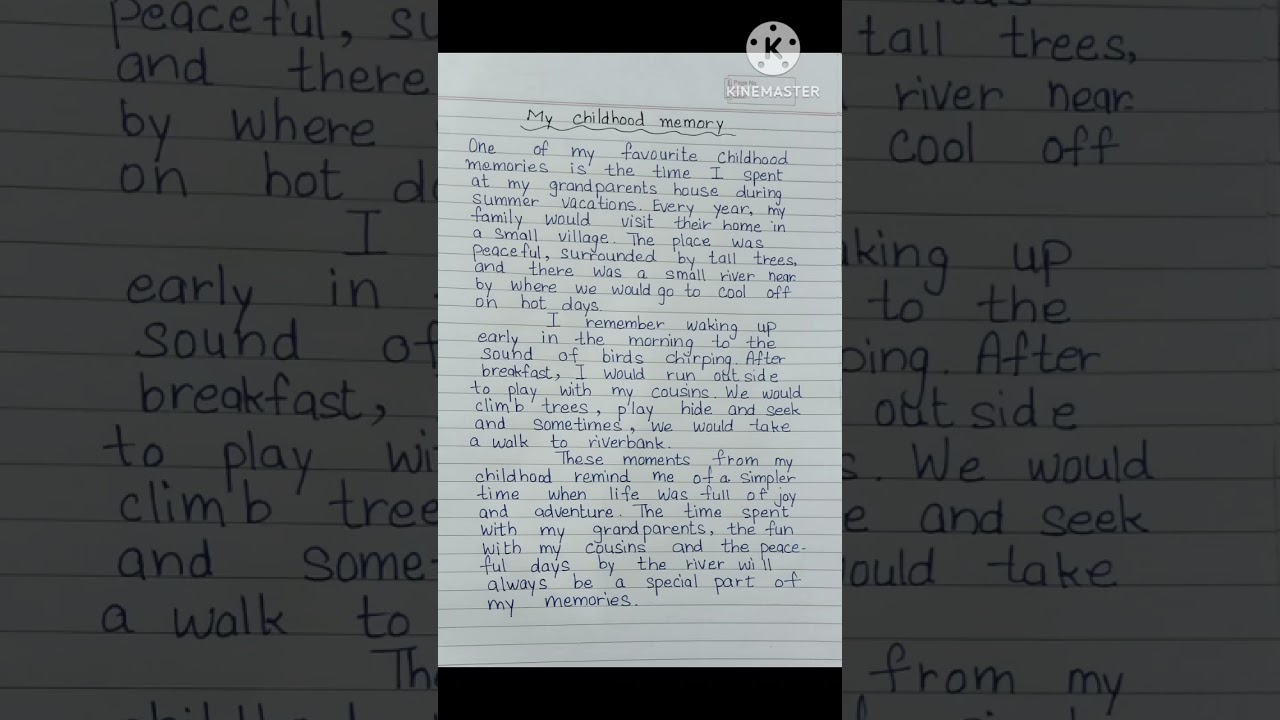 K
Page No.
KINEMASTER
My childhood memory
One of my favourite childhood
memories is the time I spent
at my grandparents house during
summer vacations. Every year, my
family would visit their home in
a small village. The place was
peaceful, surrounded by tall trees,
and there was a small river near
by where we would go to cool off
on hot days.
I remember waking up
early in the morning to the
sound of birds chirping. After
breakfast, I would run out side
to play with my cousins. We would
climb trees, play hide and seek
and sometimes, we would take
a walk to riverbank.
These moments from my
childhood remind me of a simpler
time when life was full of joy
and adventure. The time spent
with my grandparents, the fun
with my cousins and the peace-
ful days by the river will
always be a special part of
my memories.